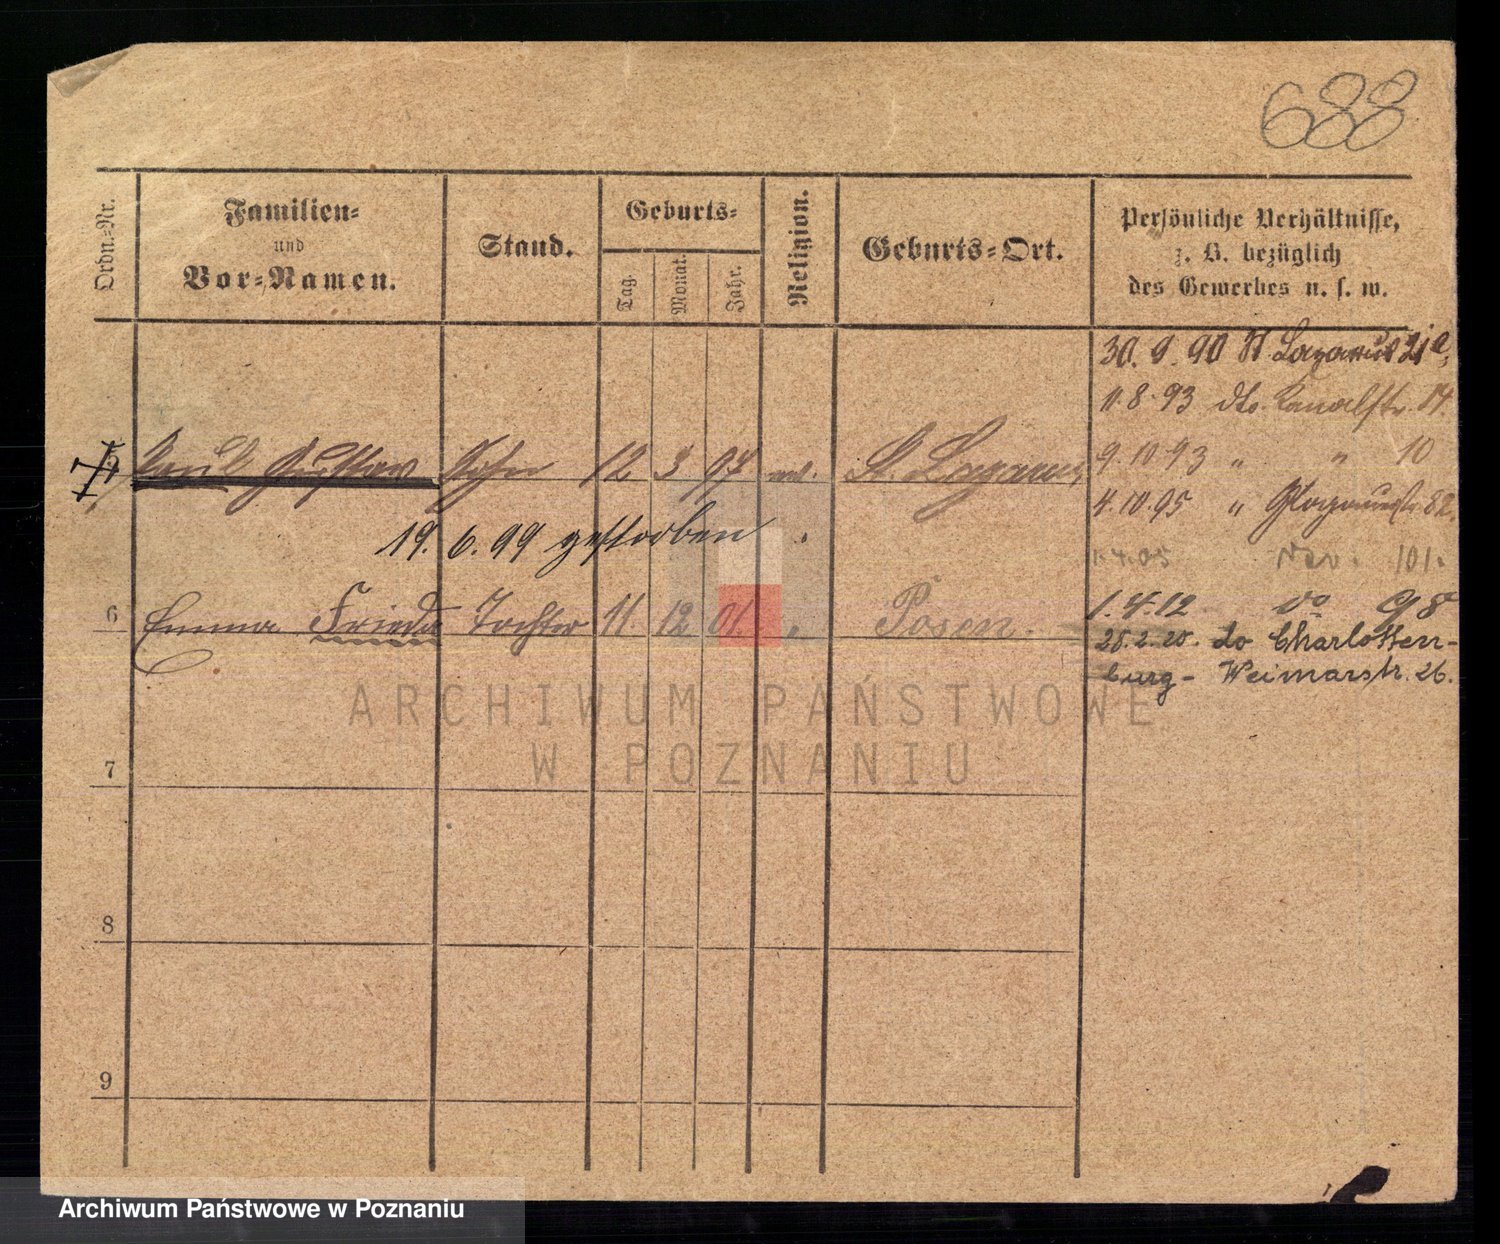 688
Ordn.-Nr.
Familien-
und
Vor-Namen.
Stand.
Geburts-
Tag.
Monat.
Jahr.
Religion.
Geburts-Ort.
Persönliche Verhältnisse,
z. B. bezüglich
des Gewerbes u. s. w.
30. 9. 90 St Lazarus 21
11.8.93 dto. Kanalstr. 14.
Gustav Sohn 12 3 97 St. Lazarus
9.10.93 " " 10
4.10.95 " Glogauerstr. 82.
19. 6. 99 gestorben.
101.
6 Emma Frieda Tochter 11. 12. 01. " Posen.
1.4.12
28.2.20. do Charlotten-
burg- Weimarstr. 26.
ARCHIWUM PAŃSTWOWE
W POZNANIU
7
8
9
Archiwum Państwowe w Poznaniu